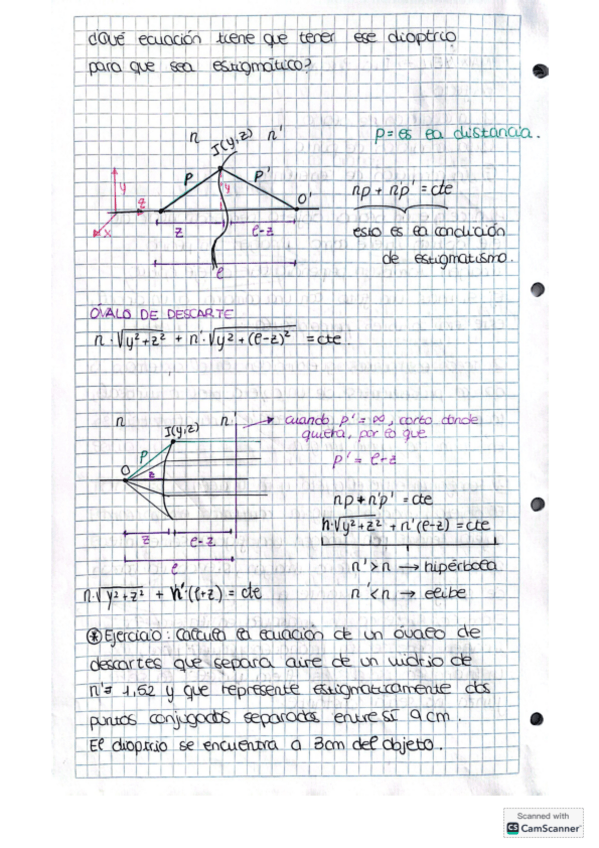 ¿Qué ecuación tiene que tener ese dioptrio
para que sea estigmático?
n I(y,z) n' p= es ea distancia.
y p p' y O' np + n'p' = cte
z
x z e-z esto es ea condición
de estigmatismo.
e
ÓVALO DE DESCARTE
n·√y²+z² + n'·√y²+(e-z)² = cte
n I(y,z) n' → cuando p' = ∞, corto donde
quiera, por eo que
p p' = e-z
O z
np + n'p' = cte
n·√y²+z² + n'(e-z) = cte
z e-z
e n' > n → hipérboea
n·√y²+z² + n'·(e+z) = cte n' < n → eeibe
* Ejercicio: Calcula ea ecuación de un óvaeo de
descartes que separa aire de un vidrio de
n'= 1,52 y que represente estigmaticamente dos
puntos conjugados separados entre sí 9 cm.
Ee dioptrio se encuentra a 3cm dee objeto.
Scanned with
CS CamScanner